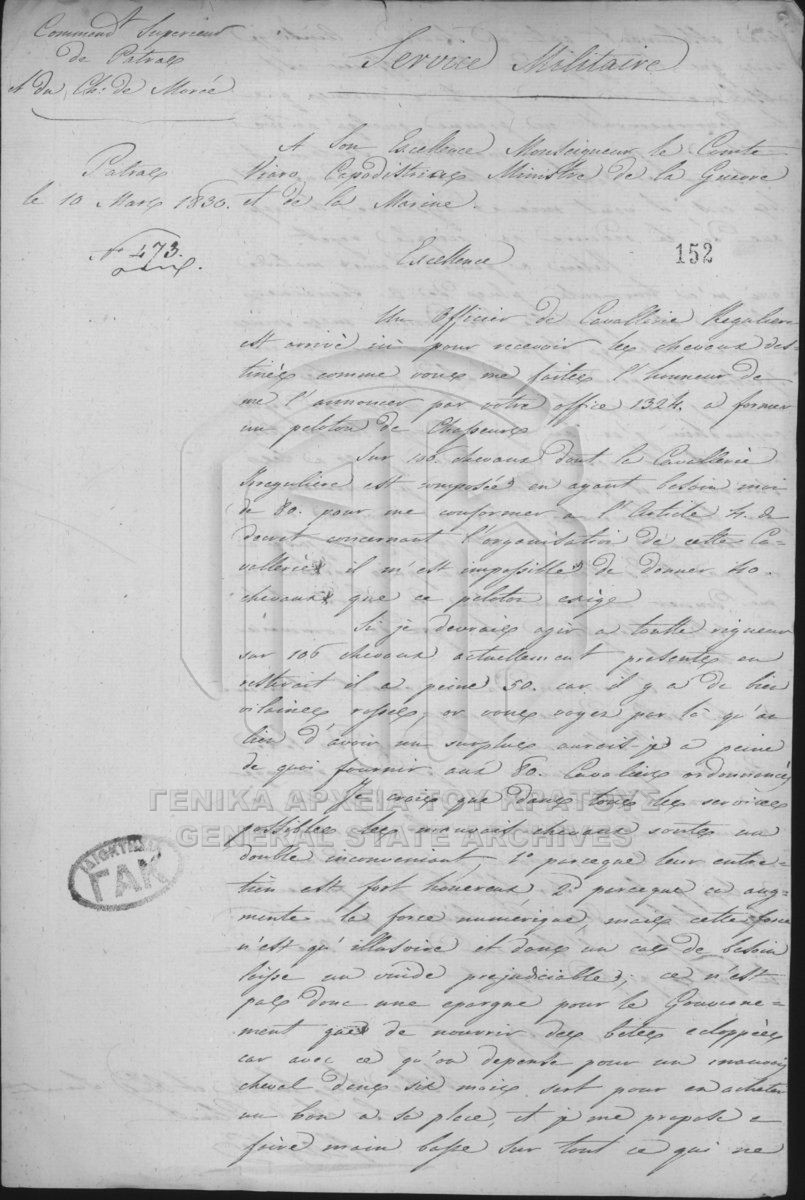 Command.t Superieur
de Patras
et du Ch: de Morée
Service Militaire
A Son Excellence Monseigneur le Comte
Viaro Capodistrias Ministre de la Guerre
et de la Marine
Patras
le 10 Mars 1830.
N° 473.
Excellence
152
Un Officier de Cavallerie Reguliere
est arrivé ici pour recevoir les chevaux des-
tinés comme vous me faites l'honneur de
me l'annoncer par votre office 1324. a former
un peloton de Chasseurs
Sur 106. chevaux dont la Cavallerie
Irreguliere est composée en ayant besoin moi
de 80. pour me conformer a l'Article 4. du
decret concernant l'organisation de cette Ca-
vallerie il m'est impossible de donner 40.
chevaux que ce peloton exige
Si je devrais agir a toutte rigueur
sur 106 chevaux actuellement presents en
resterait il a peine 50. car il y a de bien
vilaines rosses, or vous voyez par là qu'au
lieu d'avoir un surplus aurois-je a peine
de quoi fournir aux 80. Cavaliers ordonnancés
Je crois que dans tous les services
possibles les mauvais chevaux sontes un
double inconvenient, 1° parceque leur entre-
tien est fort honereux 2° parceque ca aug-
mente la force numérique, mais cette force
n'est qu'illusoire et dans un cas de besoin
laisse un vuide prejudiciable; ce n'est
pas donc une epargne pour le Gouverne-
ment que de nourrir des betes ecloppées
car avec ce qu'on depense pour un mauvais
cheval dans six mois sert pour en acheter
un bon a sa place, et je me propose a
faire main basse sur tout ce qui ne
ΓΕΝΙΚΑ ΑΡΧΕΙΑ ΤΟΥ ΚΡΑΤΟΥΣ
GENERAL STATE ARCHIVES
ΓΑΚ